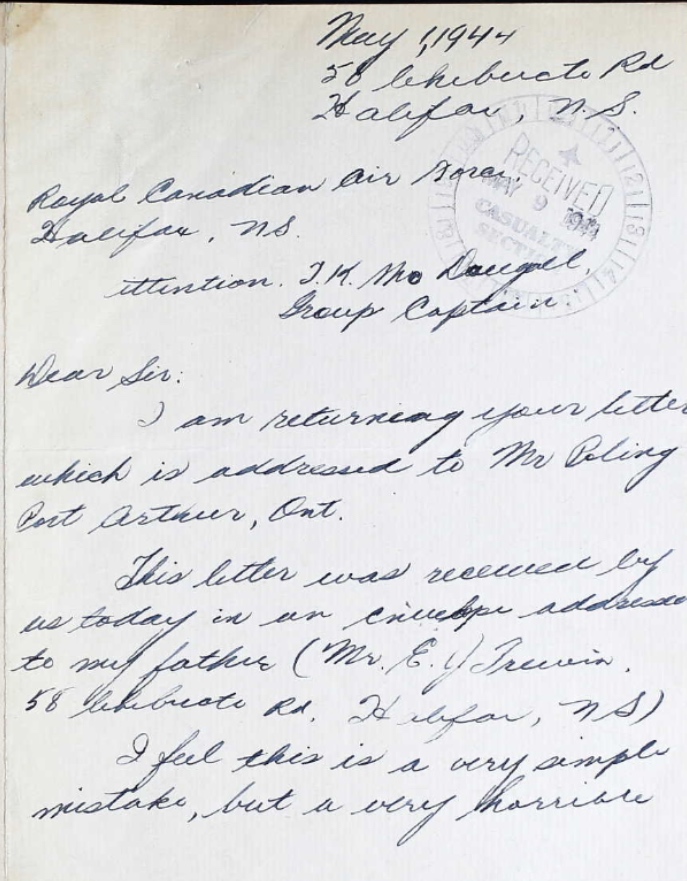 May 1, 1944
58 Chebucto Rd
Halifax, N.S.
RECEIVED
MAY 9 1944
CASUALTY
SECTION
Royal Canadian Air Force,
Halifax, NS.
attention. T.K. Mc Dougall,
Group Captain.
Dear Sir:
I am returning your letter
which is addressed to Mr Poling
Port Arthur, Ont.
This letter was received by
us today in an envelope addressed
to my father (Mr. E. J Trewin.
58 Chebucto Rd. Halifax, NS)
I feel this is a very simple
mistake, but a very horrible